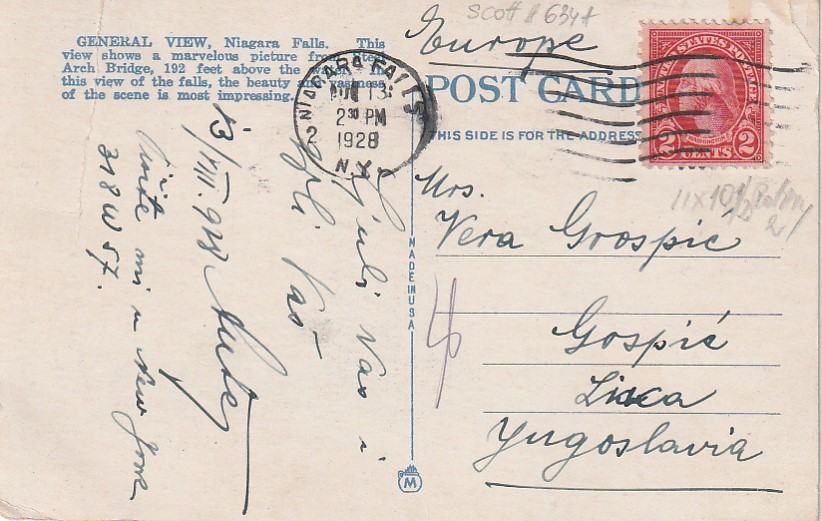 GENERAL VIEW, Niagara Falls. This
view shows a marvelous picture from Steel
Arch Bridge, 192 feet above the water. In
this view of the falls, the beauty and vastness
of the scene is most impressing.
Scott # 634
Europe
POST CARD
THIS SIDE IS FOR THE ADDRESS
NIAGARA FALLS
AUG 13
2 30 PM
1928
N.Y.
2
UNITED STATES POSTAGE
WASHINGTON
2 CENTS 2
11 x 10 1/2
Mrs.
Vera Grospić
Gospić
Lika
Yugoslavia
4
MADE IN USA
M
Ljubi Vas i
Vas
13/VIII. 928
Pišite mi u New York
318 W 57.